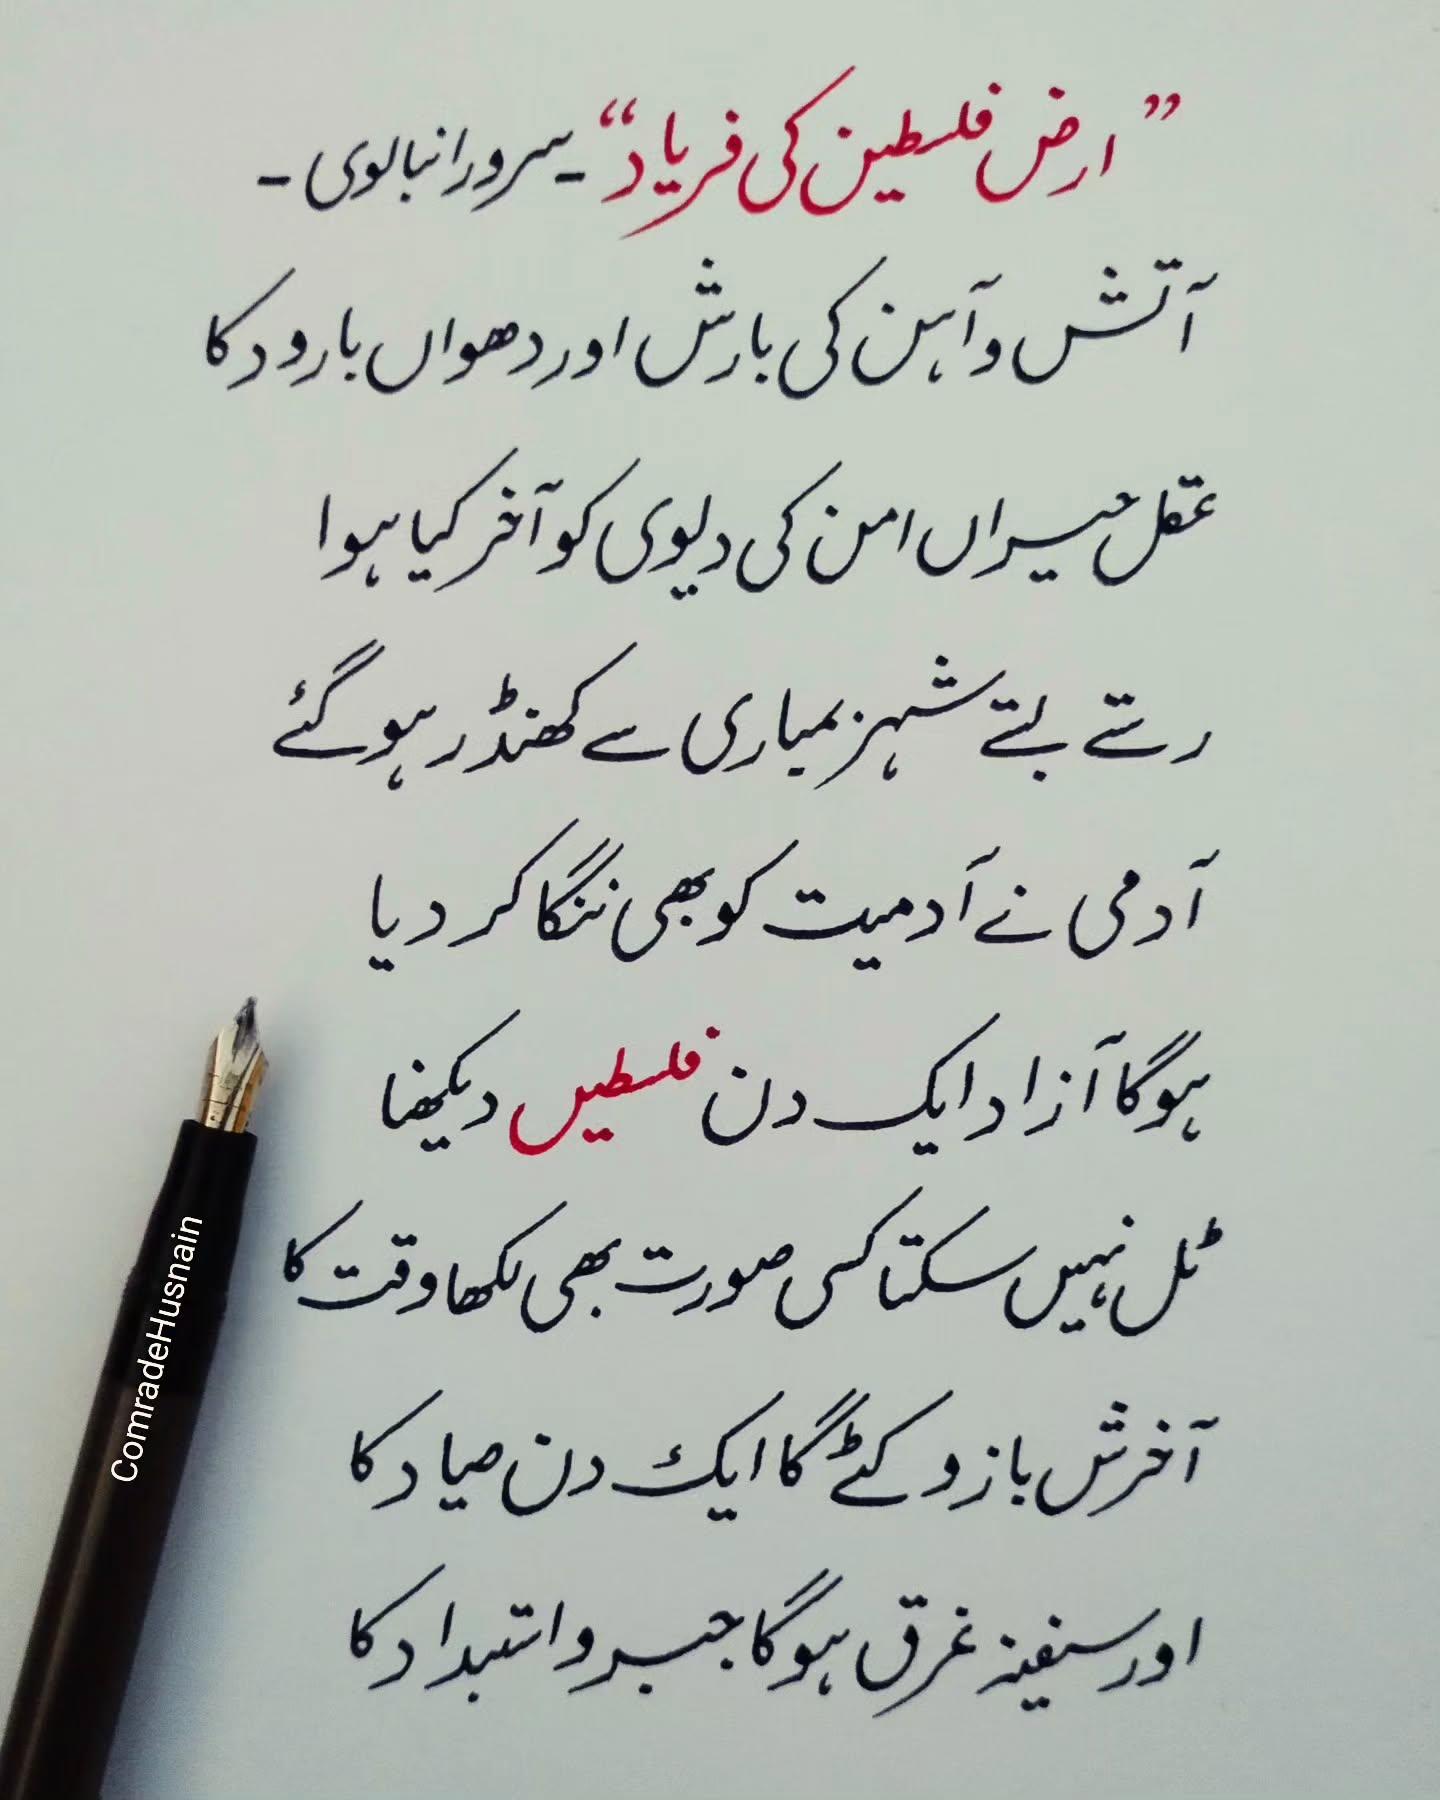 ”ارض فلسطین کی فریاد“ ۔ سرور انبالوی ۔
آتش و آہن کی بارش اور دھواں بارود کا
عقل حیراں امن کی دیوی کو آخر کیا ہوا
رستے بستے شہر بمباری سے کھنڈر ہو گئے
آدمی نے آدمیت کو بھی ننگا کر دیا
ہوگا آزاد ایک دن فلسطیں دیکھنا
ٹل نہیں سکتا کسی صورت بھی لکھا وقت کا
آخرش بازو کٹے گا ایک دن صیاد کا
اور سفینہ غرق ہوگا جبر و استبداد کا
ComradeHusnain